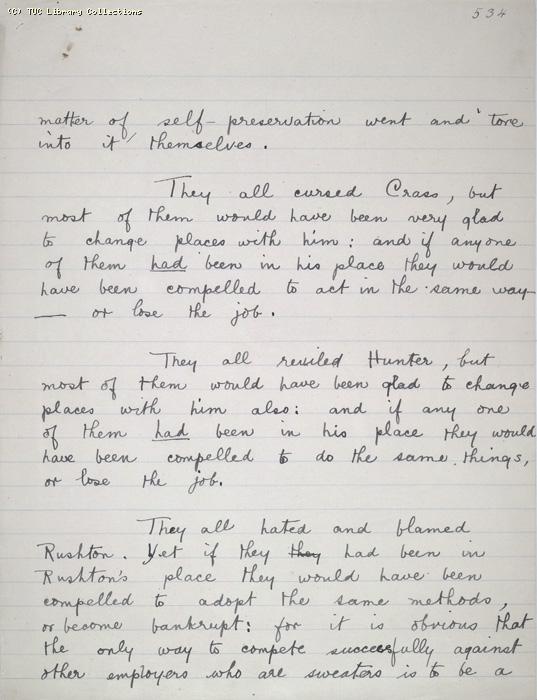 (C) TUC Library Collections
534
matter of self-preservation went and tore
into it themselves.
They all cursed Crass, but
most of them would have been very glad
to change places with him: and if anyone
of them had been in his place they would
have been compelled to act in the same way
— or lose the job.
They all reviled Hunter, but
most of them would have been glad to change
places with him also: and if any one
of them had been in his place they would
have been compelled to do the same things,
or lose the job.
They all hated and blamed
Rushton. Yet if they they had been in
Rushton's place they would have been
compelled to adopt the same methods,
or become bankrupt: for it is obvious that
the only way to compete successfully against
other employers who are sweaters is to be a